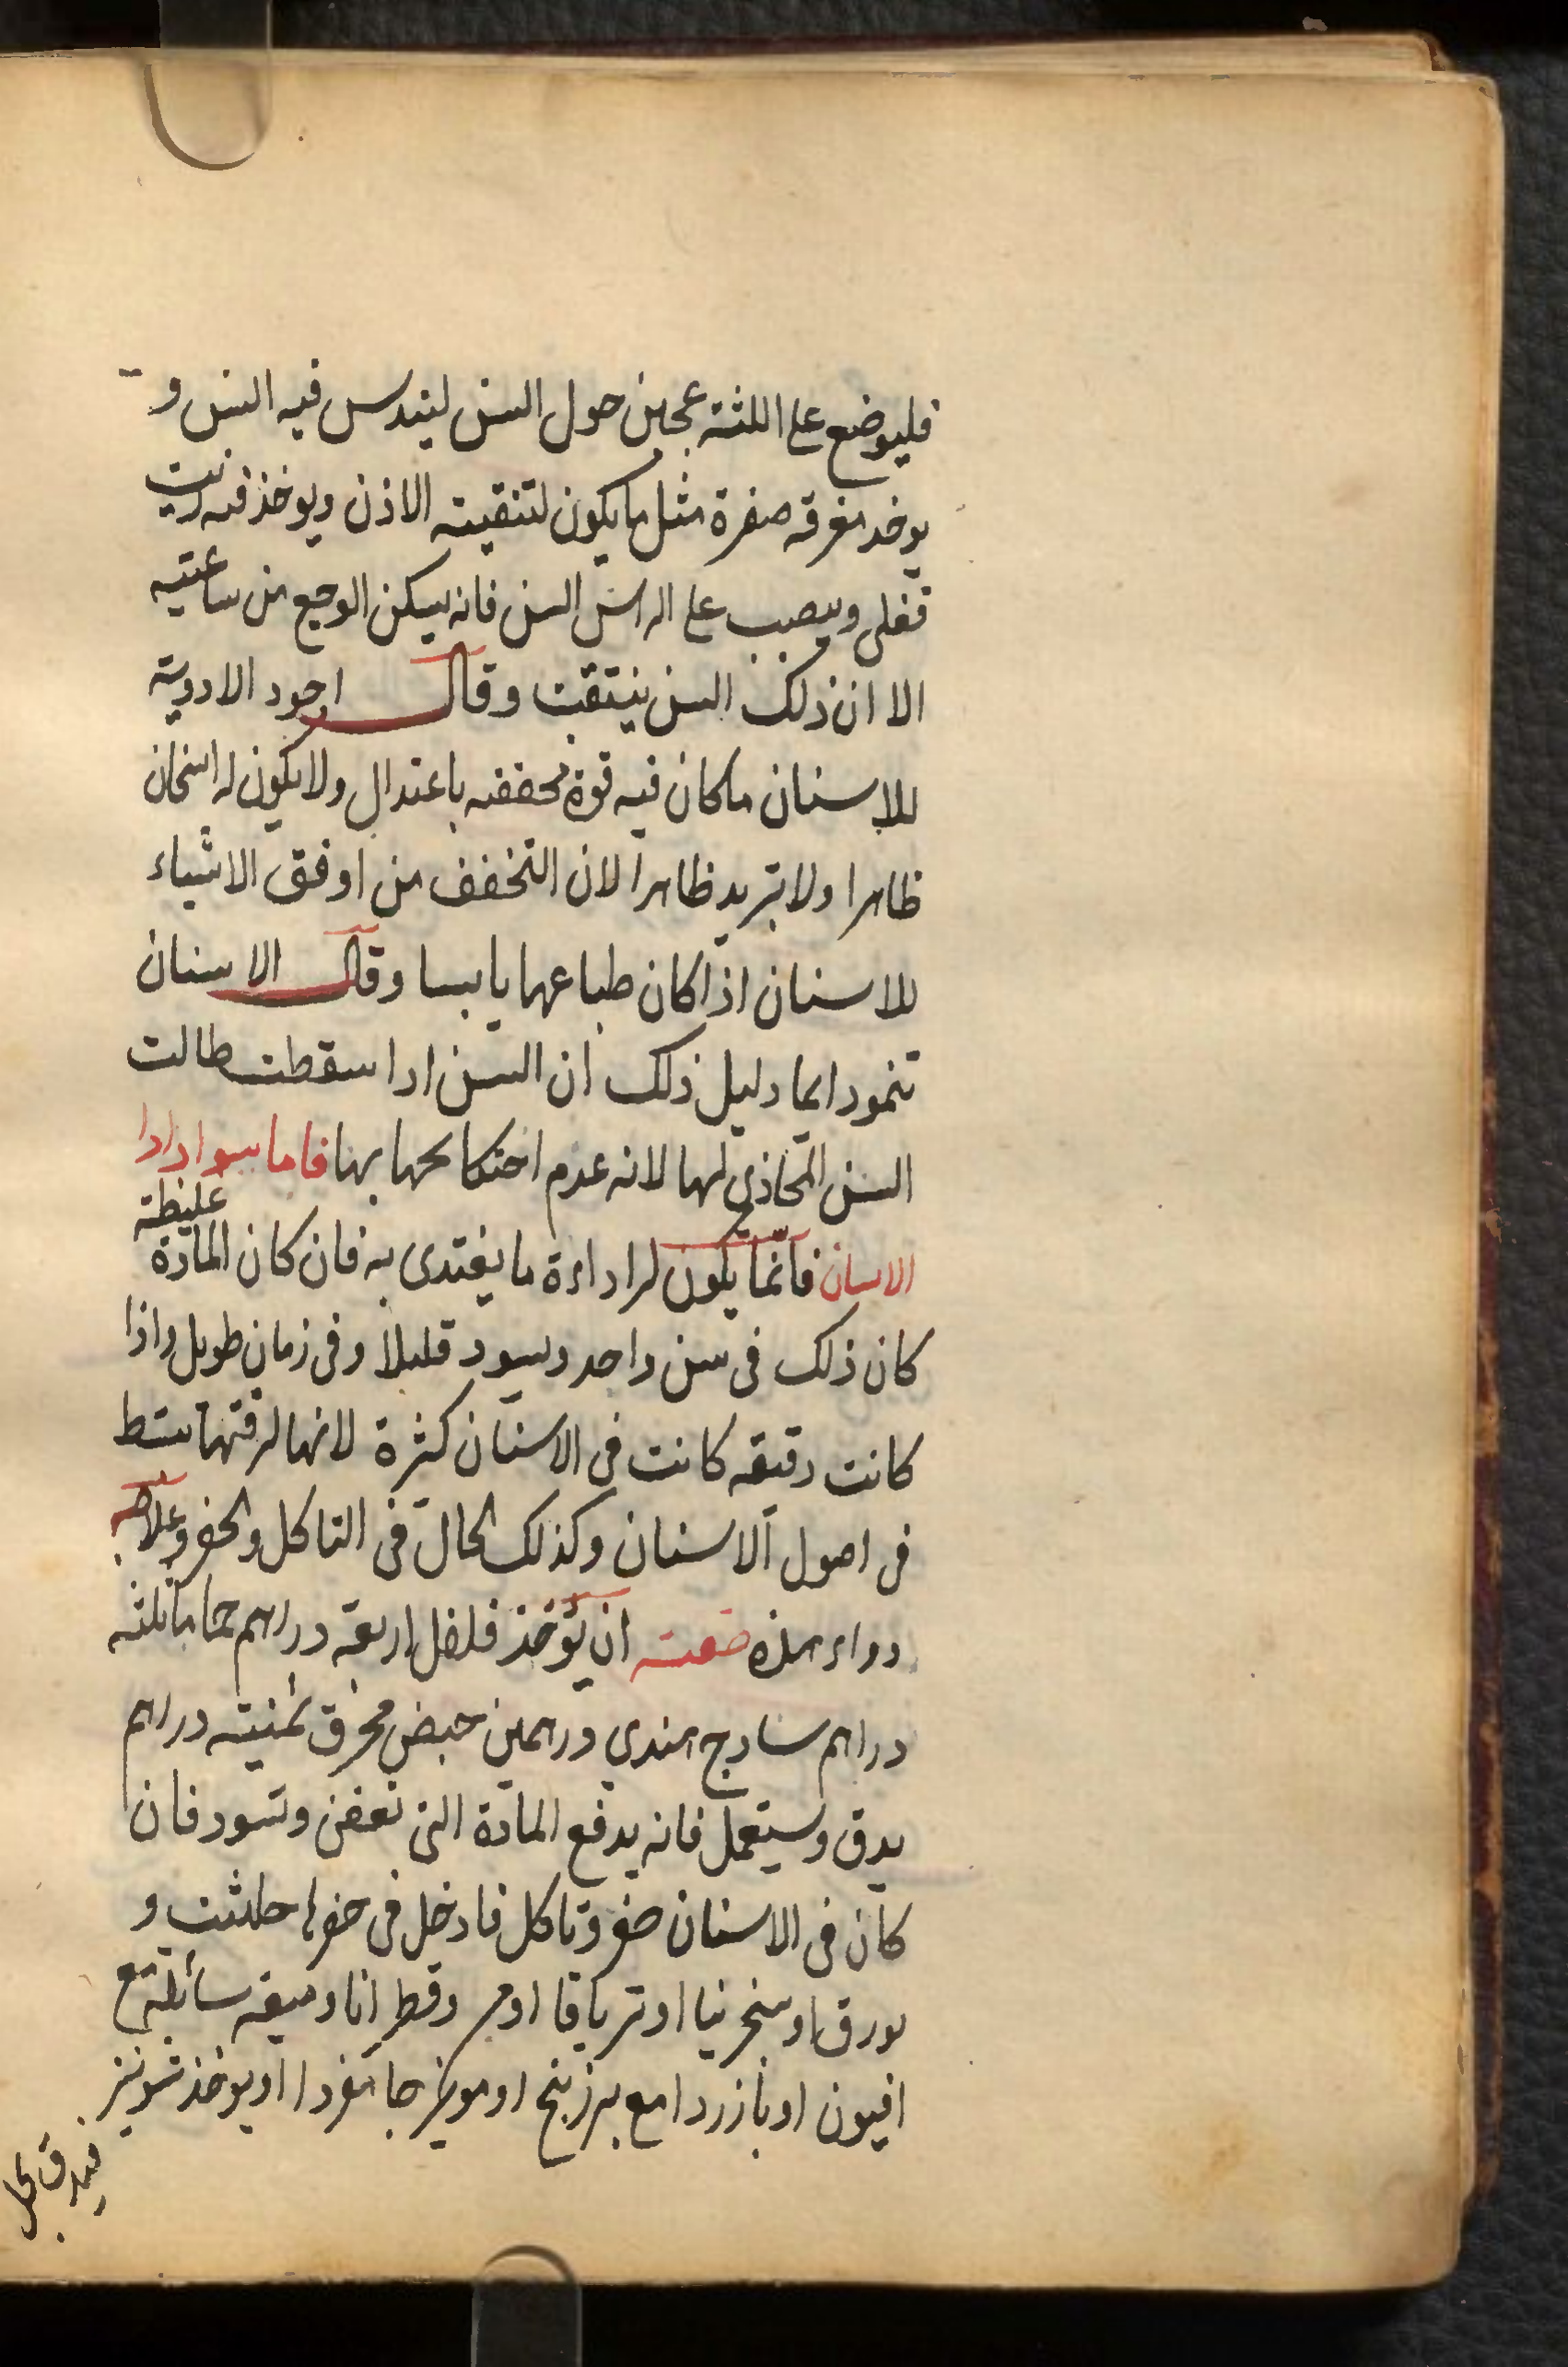 فليوضع على اللثة عجين حول السن ليندس فيه السن و
يوخد مغرفه صغرة مثل ما يكون لتنقيته الاذن ويوخذ فيه زيت
قغلى ويصبب على السن فانه يسكن الوجع من ساعتيه
الا ان ذلك السن ينتقب وقال اجود الادوية
للاسنان ما كان فيه قوة مجففه باعتدال ولا يكون له اسخان
ظاهرا ولا تبريد ظاهرا لان التخفف من اوفق الاشياء
للاسنان اذا كان طباعها يابسا وقال الاسنان
تنمو دايما دليل ذلك ان السن ادا سقطت طالت
السن المحاذي لها لانه عدم احتكاكها بها فاما سواد
الاسنان فانما يكون لرداءة ما يغتدى به فان كان المادة غليظة
كان ذلك فى سن واحد ويسود قليلا وفى زمان طويل واذا
كانت رقيقه كانت فى الاسنان كثرة لانها لرقتها
فى اصول الاسنان وكذلك الحال فى التاكل والحفر وعلاجه
دواء هذه صفته ان يؤخذ فلفل اربعة دراهم حماما ثلثه
دراهم سادج هندي درهمين حبض محرق ثمنيته دراهم
يدق ويستعمل فانه يدفع المادة التى تعفن وتسود فان
كان فى الاسنان حفر وتاكل فادخل فى حفرها حلثيت و
بورق او سنجرنيا او ترياقا او مر وقطرانا وميعه سائلة مع
افيون او بازردا مع بزر بنج او مويزجا مفردا او يوخذ شونيز
فيدق بخل